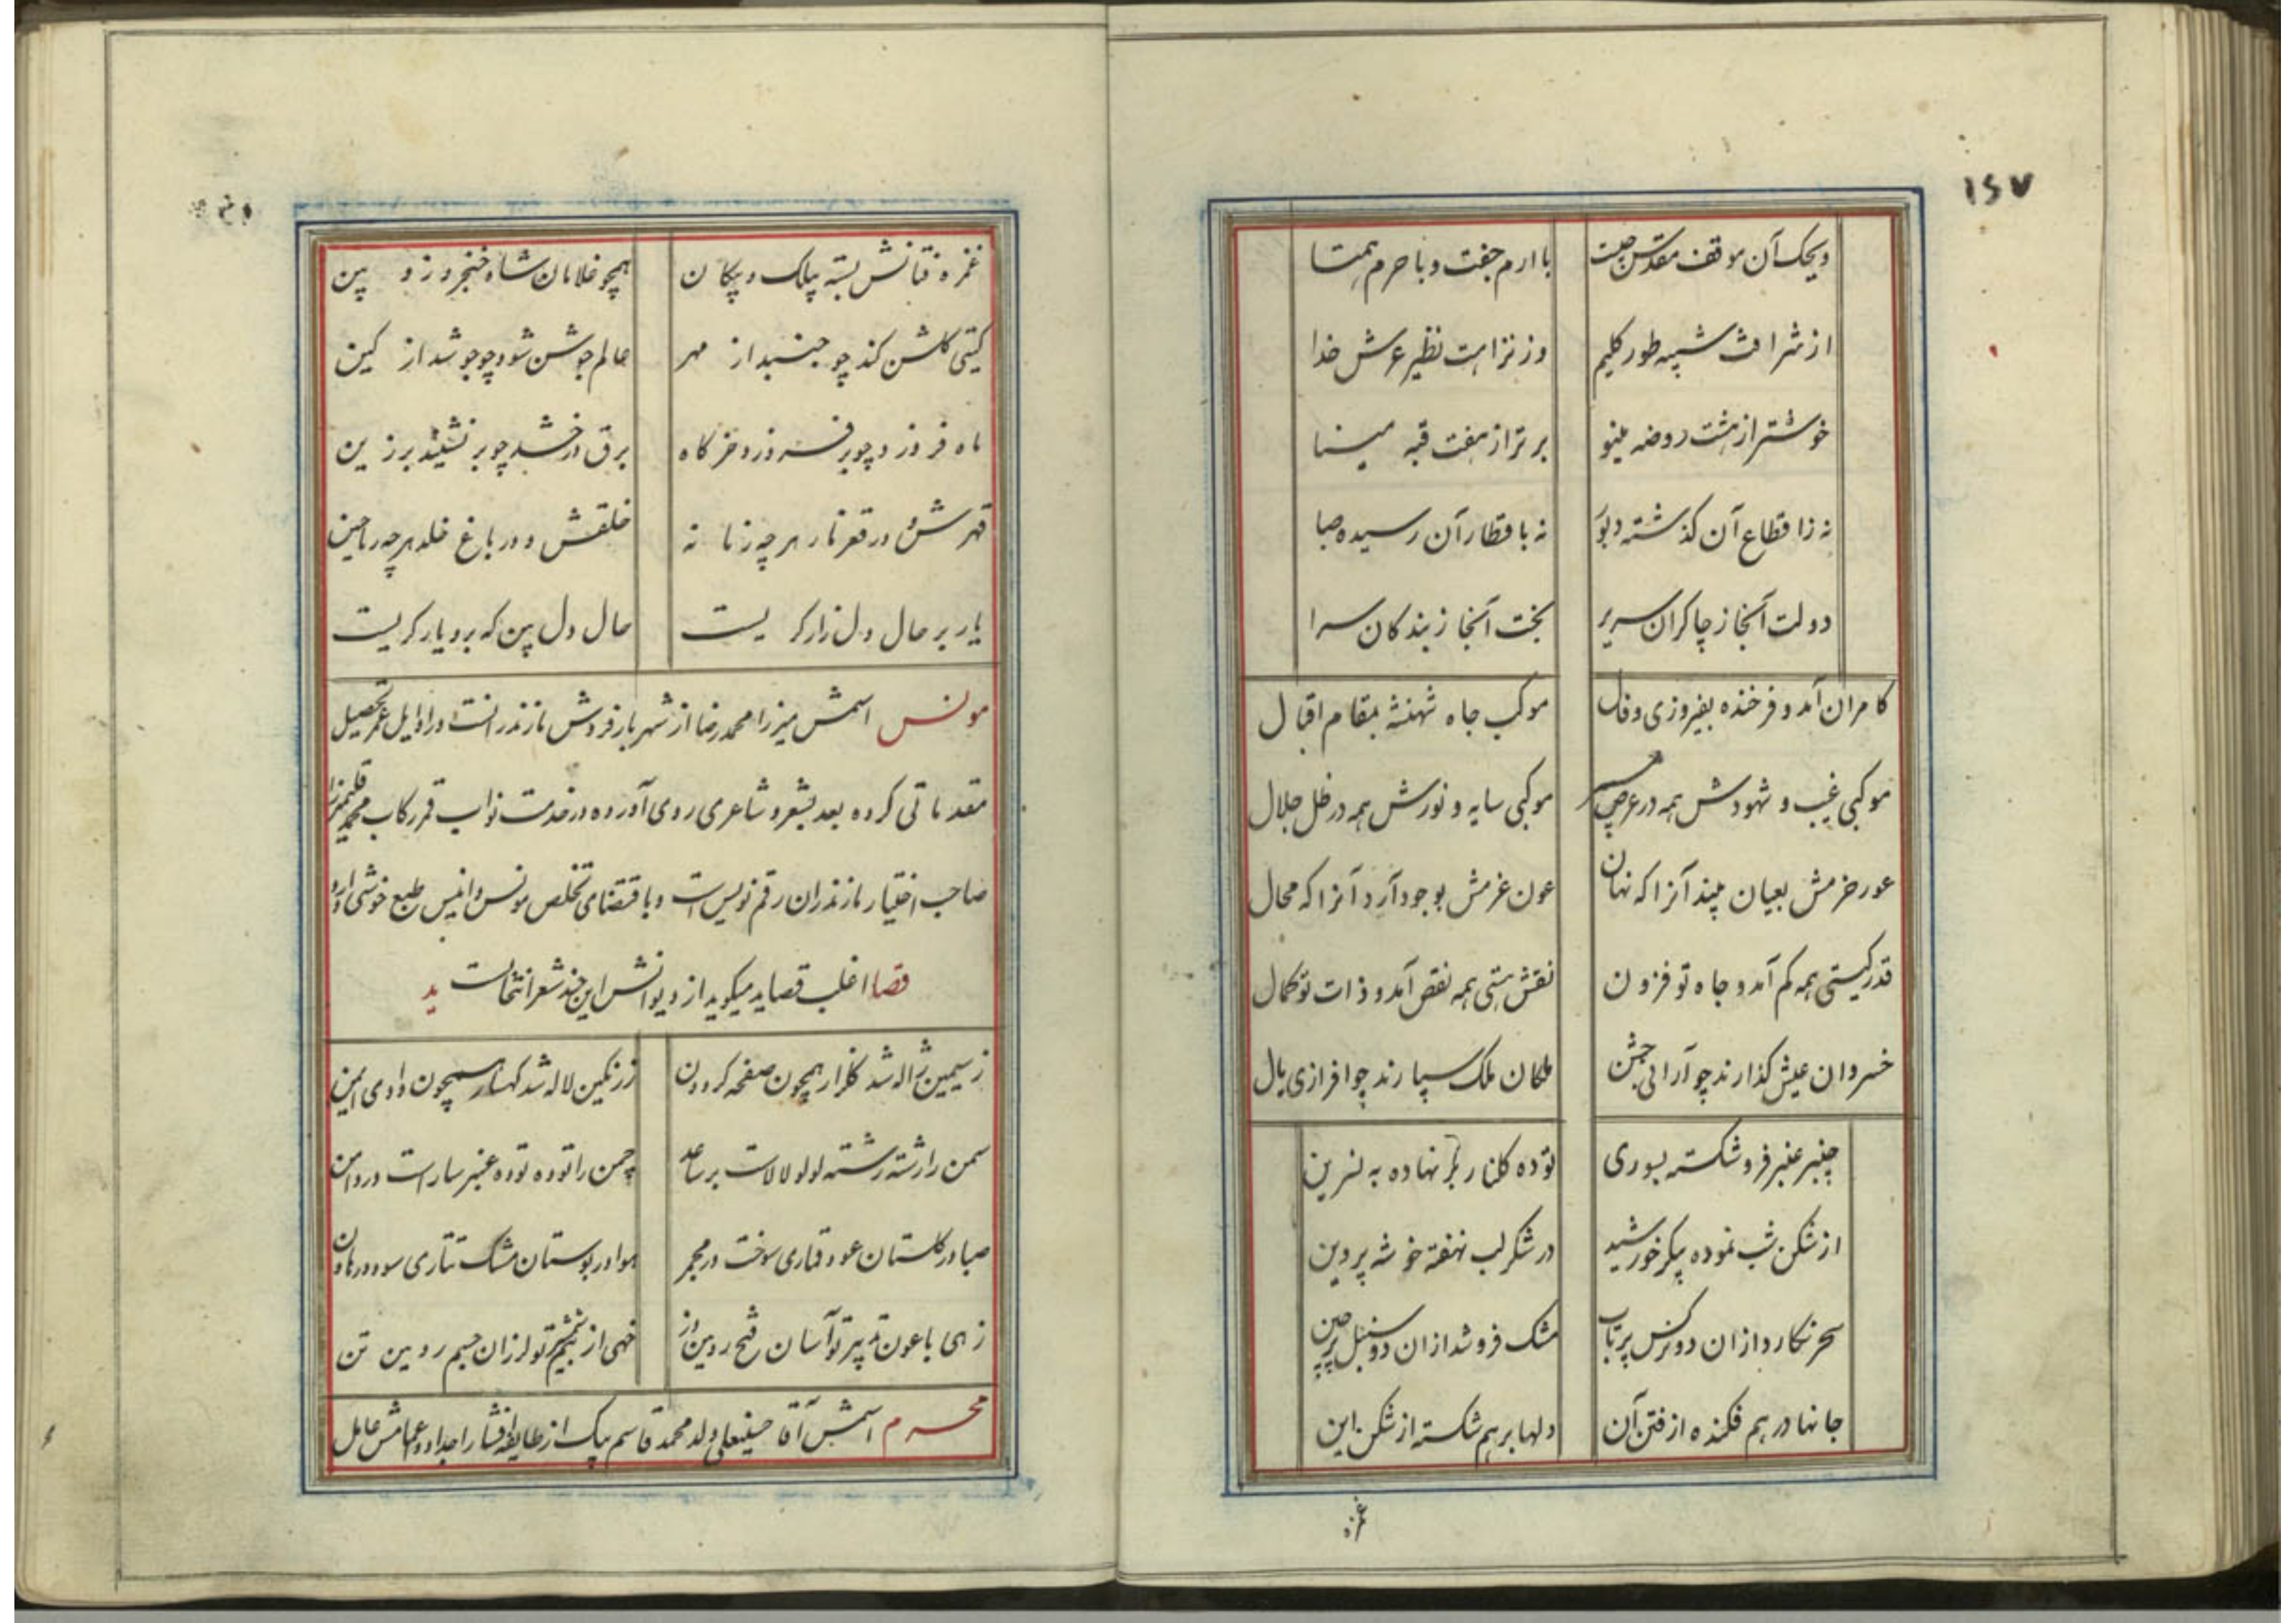 ۱۴۷
ویحک آن موقف مقدس چیست با ارم جفت و با حرم همتا
از شرافت شبیه طور کلیم وز نزاهت نظیر عرش خدا
خوشتر از هشت روضه مینو برتر از هفت قبه مینا
نه زاقطاع آن گذشته دبور نه باقطار آن رسیده صبا
دولت آنجا ز چاکران سریر بخت آنجا ز بندگان سرا
کامران آمد و فرخنده بفیروزی و فال موکب جاه شهنشه بمقام اقبال
موکبی غیب و شهودش همه در عرض موکبی سایه و نورش همه در ظل جلال
حزمش بعیان بیند آنرا که نهان عون عزمش بوجود آرد آنرا که محال
قدر گیتی همه کم آمد و جاه تو فزون نقش هستی همه نقص آمد و ذات تو کمال
خسروان عیش گذارند چو آرائی جشن ملکان ملک سپارند چو افرازی یال
چنبر عنبر فرو شکسته بسوری توده گلنار بر نهاده به نسرین
از شکن شب نموده پیکر خورشید در شکر لب نهفته خوشه پروین
سحر نگارد از آن دو نرگس پرتاب مشک فروشد از آن دو سنبل پرچین
جانها در هم فکنده از فتن آن دلها بر هم شکسته از شکن این
غمزه
غمزه فتانش بسته پیلک و پیکان همچو غلامان شاه خنجر و زوپین
گیتی گلشن کند چو جنبد از مهر عالم جوشن شود چو جوشد از کین
ماه فروزد چو بر فروزد خرگاه برق درخشد چو بر نشیند بر زین
قهرش و در قعر نار هر چه زبانه خلقش و در باغ خلد هر چه ریاحین
یار بر حال دل زار گریست حال دل بین که برو یار گریست
مونس اسمش میرزا محمد رضا از شهر بارفروش مازندرانست در اوایل عمر تحصیل
مقدماتی کرده بعد بشعر و شاعری روی آورده در خدمت نواب قمر رکاب محمد قلیمیرزا
صاحب اختیار مازندران رقم نویس است و باقتضای تخلص مونس و انیس طبع خوشی دارد
قصا اغلب قصاید میگوید از دیوانش این چند شعر انتخابست ید
ز سیمین ژاله شد گلزار همچون صفحه گردون ز رنگین لاله شد کهسار همچون وادی ایمن
سمن را رشته رشته لولو لالاست بر ساعد چمن را توده توده عنبر ساراست در دامن
صبا در گلستان عود قماری سوخت در مجمر هوا در بوستان مشک تتاری سود در هاون
زهی با عون تدبیر تو آسان فتح رویین دژ خهی از بیم شمشیر تو لرزان جسم رویین تن
محرم اسمش آقا حسینعلی ولد محمد قاسم بیک از طایفه افشار اجداد و اعمامش عامل